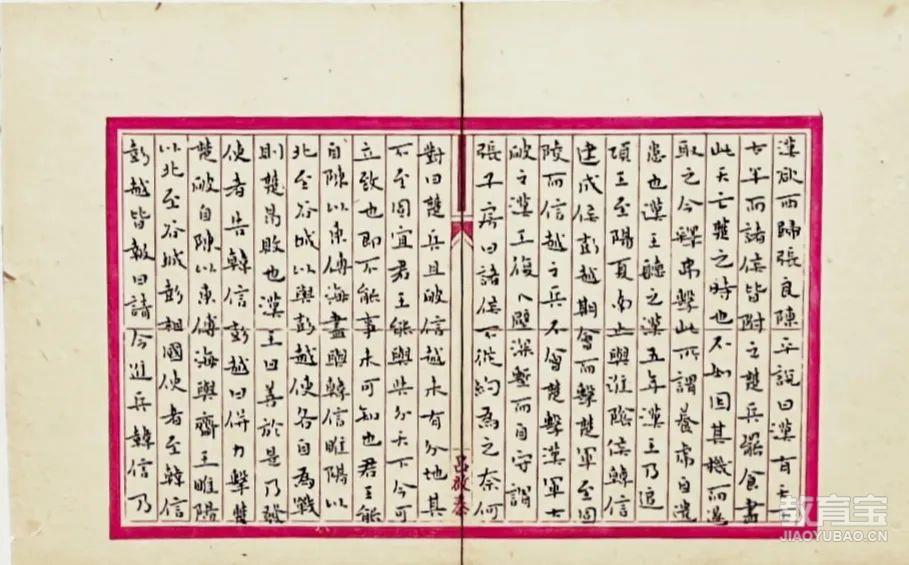 漢欲西歸張良陳平說曰漢有天下
太半而諸侯皆附之楚兵罷食盡
此天亡楚之時也不如因其機而遂
取之今釋弗擊此所謂養虎自遺
患也漢王聽之漢五年漢王乃追
項王至陽夏南止與淮陰侯韓信
建成侯彭越期會而擊楚軍至固
陵而信越之兵不會楚擊漢軍大
破之漢王復入壁深塹而自守謂
張子房曰諸侯不從約為之奈何
對曰楚兵且破信越未有分地其
不至固宜君王能與共分天下今可
立致也即不能事未可知也君王能
自陳以東傅海盡與韓信睢陽以
北至谷城以與彭越使各自為戰
則楚易敗也漢王曰善於是乃發
使者告韓信彭越曰併力擊楚
楚破自陳以東傅海與齊王睢陽
以北至谷城彭相國使者至韓信
彭越皆報曰請今進兵韓信乃
教育宝
JIAOYUBAO.CN